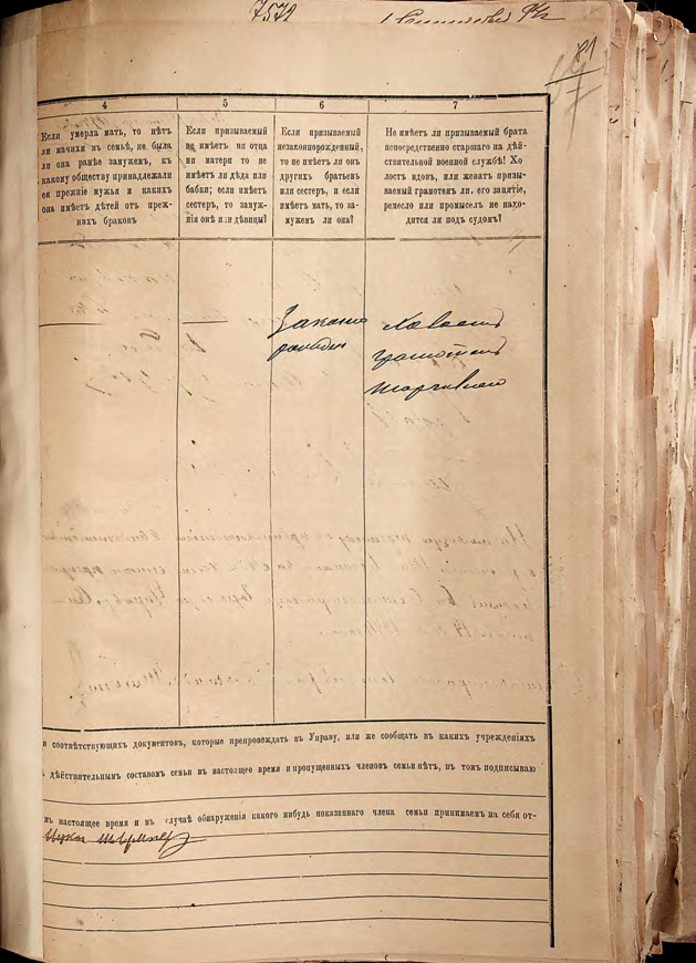 7572
81
4
5
6
7
Если умерла мать, то нѣтъ
ли мачихи въ семьѣ, не была
ли она ранѣе замужемъ, къ
какому обществу принадлежали
ея прежніе мужья и какихъ
она имѣетъ дѣтей отъ преж-
нихъ браковъ
Если призываемый
не имѣетъ ни отца
ни матери то не
имѣетъ ли дѣда или
бабки; если имѣетъ
сестеръ, то замуж-
нія онѣ или дѣвицы?
Если призываемый
незаконнорожденный,
то не имѣетъ ли онъ
другихъ братьевъ
или сестеръ, и если
имѣетъ мать, то за-
мужемъ ли она?
Не имѣетъ ли призываемый брата
непосредственно старшаго на дѣй-
ствительной военной службѣ! Хо
лостъ вдовъ, или женатъ призы-
ваемый грамотенъ ли, его занятіе,
ремесло или промыселъ не нахо-
дится ли подъ судомъ?
Законно
холостъ
грамотенъ
и соотвѣтствующихъ документовъ, которые препровождать въ Управу, или же сообщать въ какихъ учрежденіяхъ
дѣйствительнымъ составомъ семьи въ настоящее время и пропущенныхъ членовъ семьи нѣтъ, въ томъ подписываю
настоящее время и въ случаѣ обнаруженія какого нибудь показаннаго члена семьи принимаемъ на себя от-